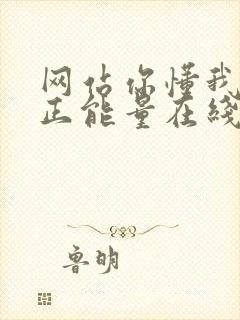 网站你懂我
正能量在线
鲁明